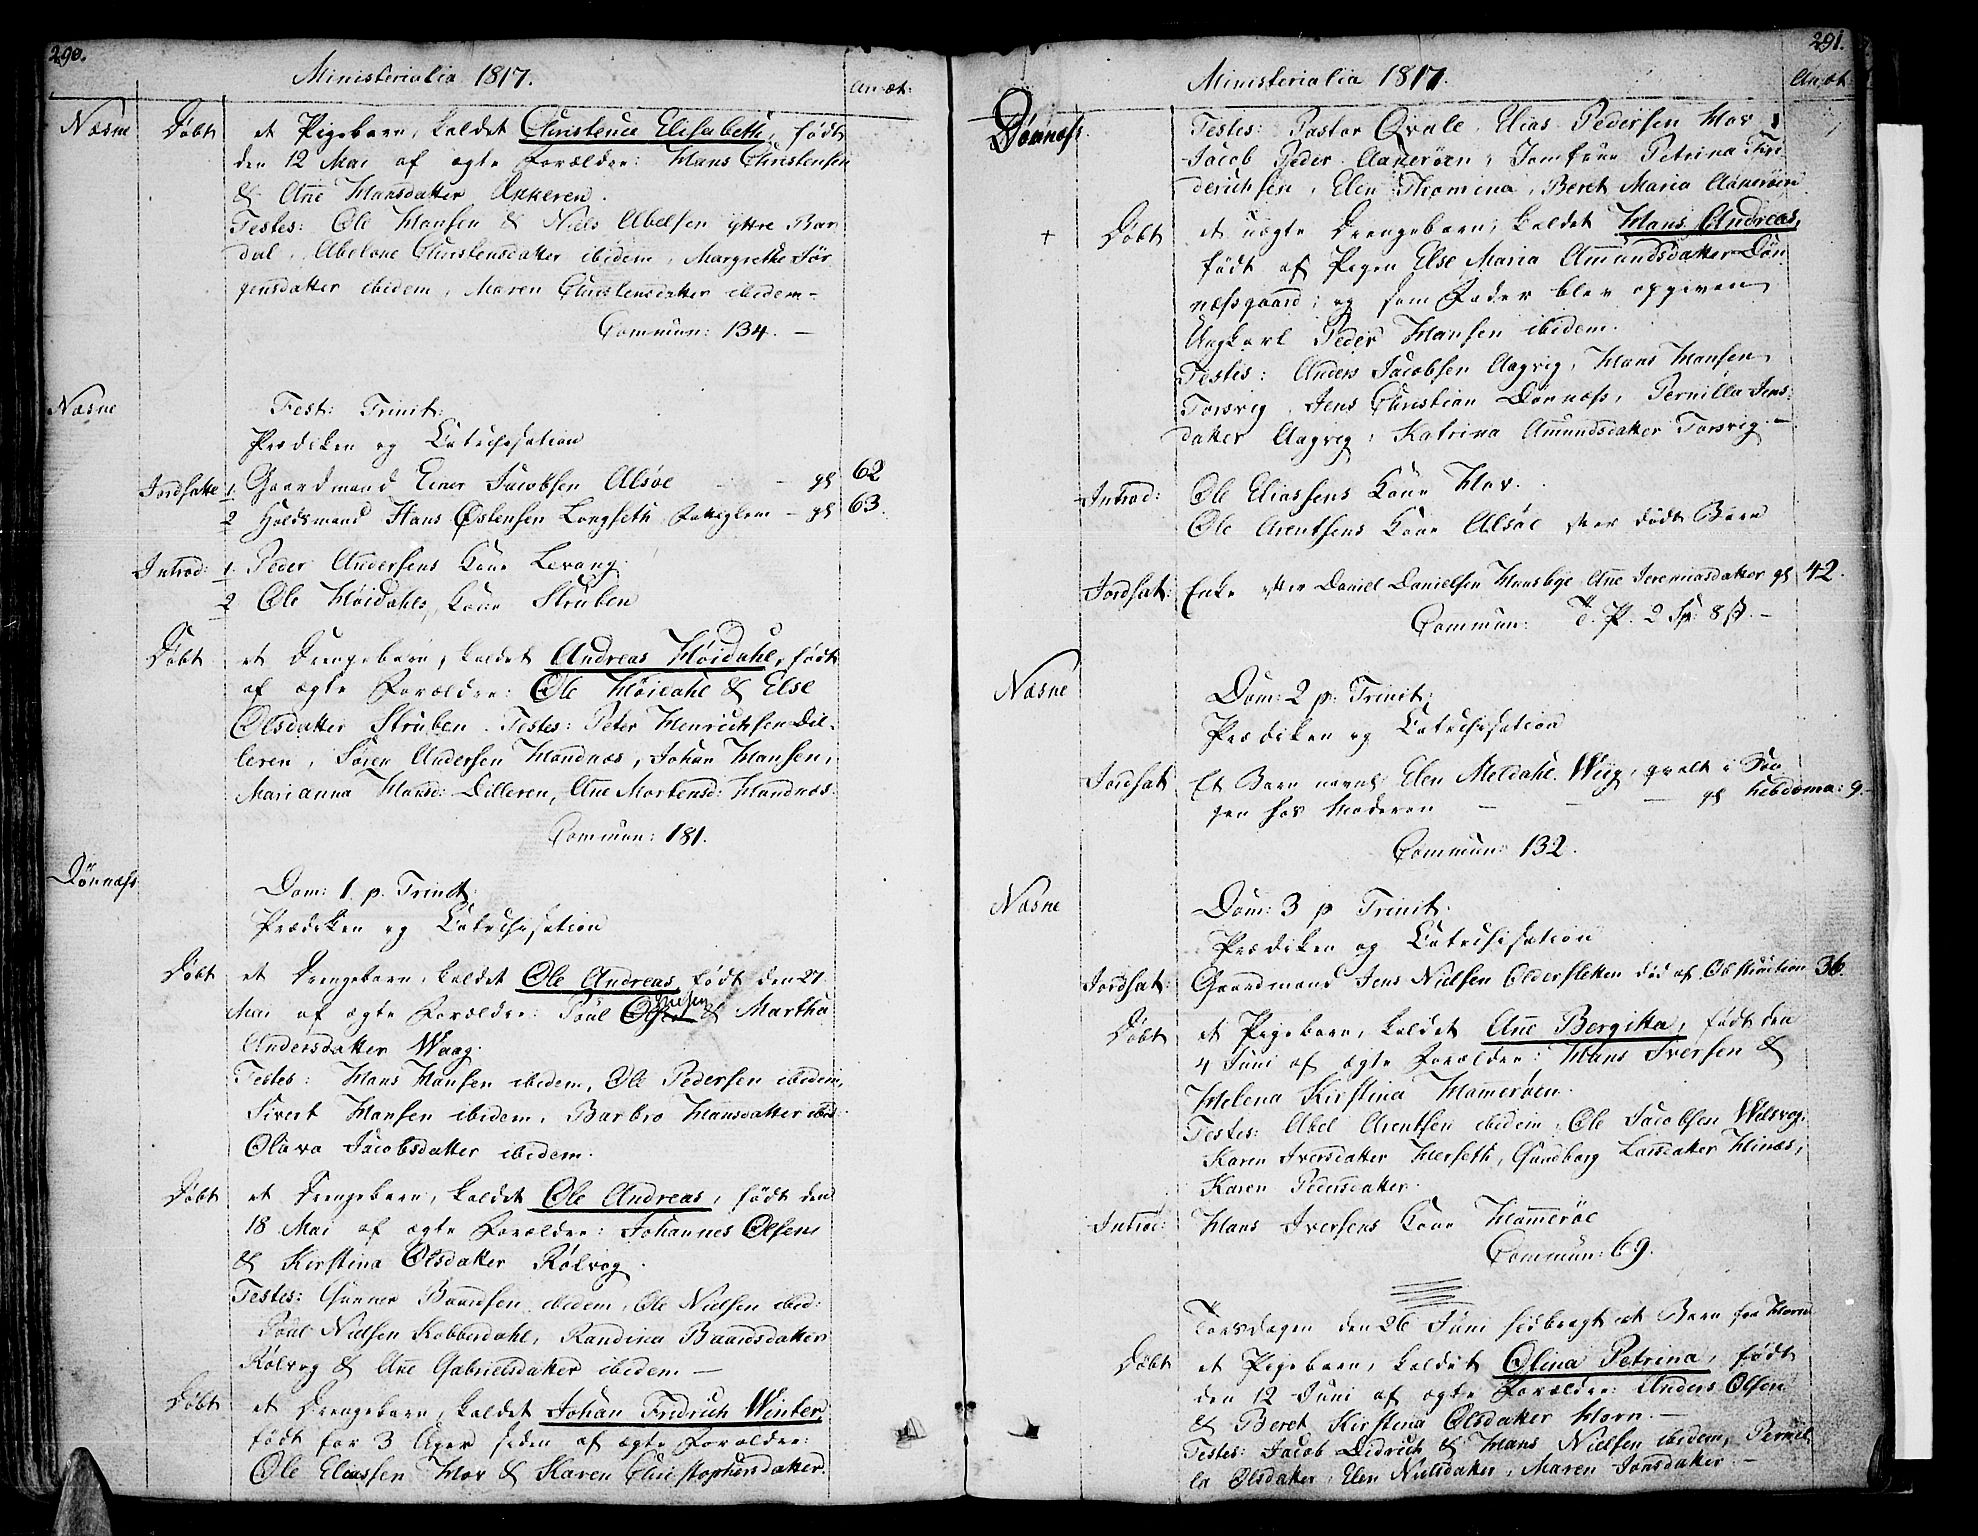 290.
Ministerialia 1817.
An: æt:
Næsne Døbt et Pigebarn, kaldet Christence Elisabeth, født
den 12 Mai af ægte Forældre: Hans Christensen
& Ane Hansdatter Akkeren.
Testes: Ole Hansen & Niels Abelsen yttre Bar
dal, Abelone Christensdatter ibidem, Margrethe Jør
gensdatter ibidem, Maren Christensdatter ibidem -
Commun: 134. -
Næsne Fest: Trinit:
Prædiken og Catechisation
Jordsatte 1. Gaardmand Einer Jacobsen Alsøe - - gl 62
2 Huusmand Hans Østensen Longseth - gl 63.
Introd: 1. Peder Andersens Kone Levang.
2 Ole Høidahls Kone Struben
Døbt et Drengebarn, kaldet Andreas Høidahl, født
af ægte Forældre: Ole Høidahl & Else
Olsdatter Struben. Testes: Peter Henrichsen Dil-
leren, Søren Andersen Handnæs, Johan Hansen,
Marianna Hansd: Dilleren, Ane Mortensd: Handnæs.
Commun: 181.
Dønnæss Dom: 1. p. Trinit:
Prædiken og Catechisation
Døbt et Drengebarn, kaldet Ole Andreas, født den 27
Mai af ægte Forældre: Poul & Martha
Andersdatter Waag.
Testes: Hans Hansen ibidem, Ole Pedersen ibidem,
Sivert Hansen ibidem, Barbro Hansdatter ibid:
Olava Jacobsdatter ibidem.
Døbt et Drengebarn, kaldet Ole Andreas, født den
18 Mai af ægte Forældre: Johannes Olsen
& Kirstina Olsdatter Rølvog.
Testes: Gunner Baardsen ibidem, Ole Nielsen ibid:
Poul Nielsen Kobberdahl, Randina Baardsdatter
Rølvog & Ane Gabrielsdatter ibidem -
Døbt et Drengebarn, kaldet Johan Fridrich Winter,
født for 3 Uger siden af ægte Forældre:
Ole Eliassen Hov & Karen Christophersdatter.
291.
Ministerialia 1817.
An: æt.
Dønnæss. Testes: Pastor Qvale, Elias Pedersen Hov,
Jacob Peder Aakerøen, Jomfrue Petrina Fri
derichsen, Elen Thomina, Beret Maria Aakerøen
+ Døbt et uægte Drengebarn, kaldet Hans Andreas,
født af Pigen Else Maria Amundsdatter Døn
næssgaard; og som Fader blev opgiven
Ungkarl Peder Hansen ibidem.
Testes: Anders Jacobsen Aagvig, Hans Hansen
Torsvig, Jens Christian Dønnæss, Pernilla Jens:
datter Aagvig, Katrina Amundsdatter Torsvig. -
Introd: Ole Eliassens Kone Hov.
Ole Arentsens Kone Alsøe efter dødt Barn
Jordsat: Enke efter Daniel Danielsen Hansbye, Ane Jeremiasdatter gl 42.
Commun: T. P. 2 Sp: 8 ß. -
Næsne Dom: 2 p: Trinit:
Prædiken og Catechisation
Jordsat Et Barn navnl: Elen Meldahl Wiig, qvalt i Sen
gen hos Moderen - - - gl hebdoma: 9.
Commun: 132.
Næsne Dom: 3 p Trinit:
Prædiken og Catechisation
Jordsat: Gaardmand Jens Nielsen Oldersletten død af Obstruction 36.
Døbt et Pigebarn, kaldet Ane Bergitta, født den
4 Juni af ægte Forældre: Hans Iversen &
Helena Kirstina Hamerøen.
Testes: Abel Arentsen ibidem, Ole Jacobsen Walsvog,
Karen Iversdatter Herseth, Gundborg Larsdatter Hinæs,
Karen Pedersdatter.
Introd: Hans Iversens Kone Hamerøe
Commun: 69.
Torsdagen den 26 Juni hidbragt et Barn fra Horn
Døbt et Pigebarn, kaldet Olina Petrina, født
den 12 Juni af ægte Forældre: Anders Olsen
& Beret Kirstina Olsdatter Horn. -
Testes: Jacob Didrich & Hans Nielsen ibidem, Pernil
la Olsdatter, Elen Nielsdatter, Maren Jonsdatter. -